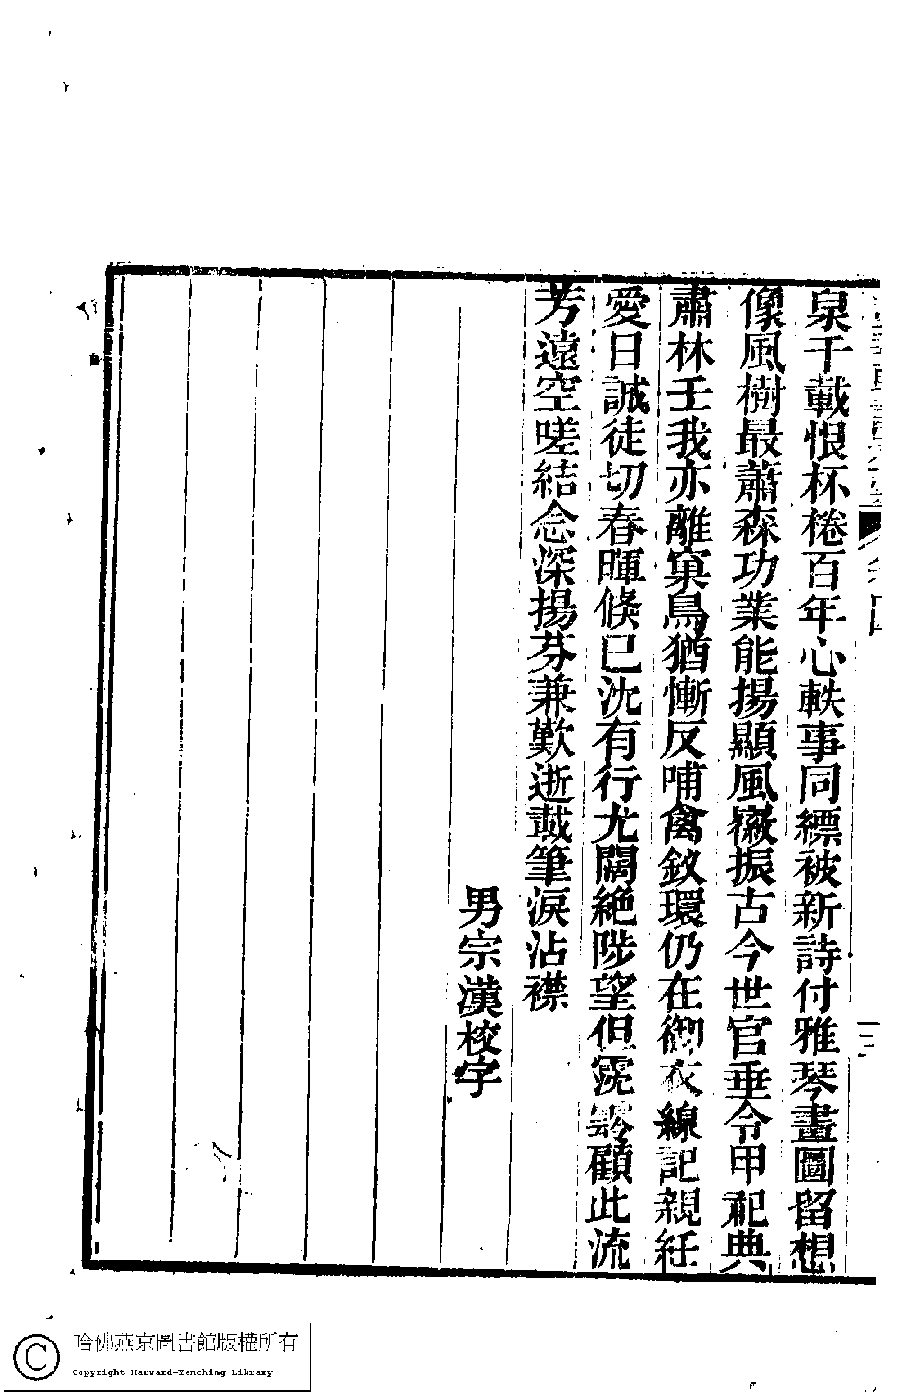 泉千載恨杯棬百年心軼事同縹被新詩付雅琴畫圖留想
像風樹最蕭森功業能揚顯風徽振古今世官垂令甲祀典
肅林壬我亦離巢鳥猶慚反哺禽釵環仍在御衣線記親紝
愛日誠徒切春暉倏已沈有行尤闊絕陟望但霑顧此流
芳遠空嗟結念深揚芬兼歎逝戢筆淚沾襟
男宗漢校字
卷四
三
哈佛燕京圖書館版權所有
Copyright Harvard-Yenching Library